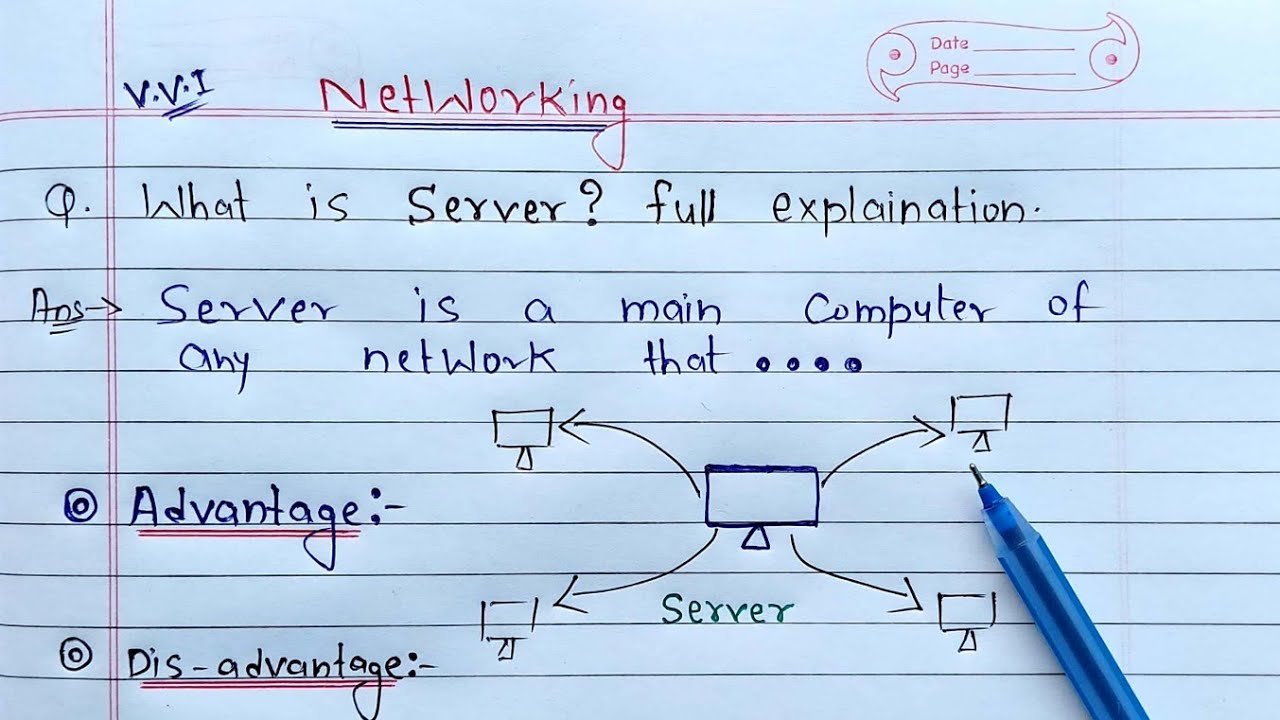 Date
Page
V.V.I Networking
Q. What is Server? full explaination.
Ans→ Server is a main Computer of
any network that ••••
Advantage:-
Server
Dis-advantage:-